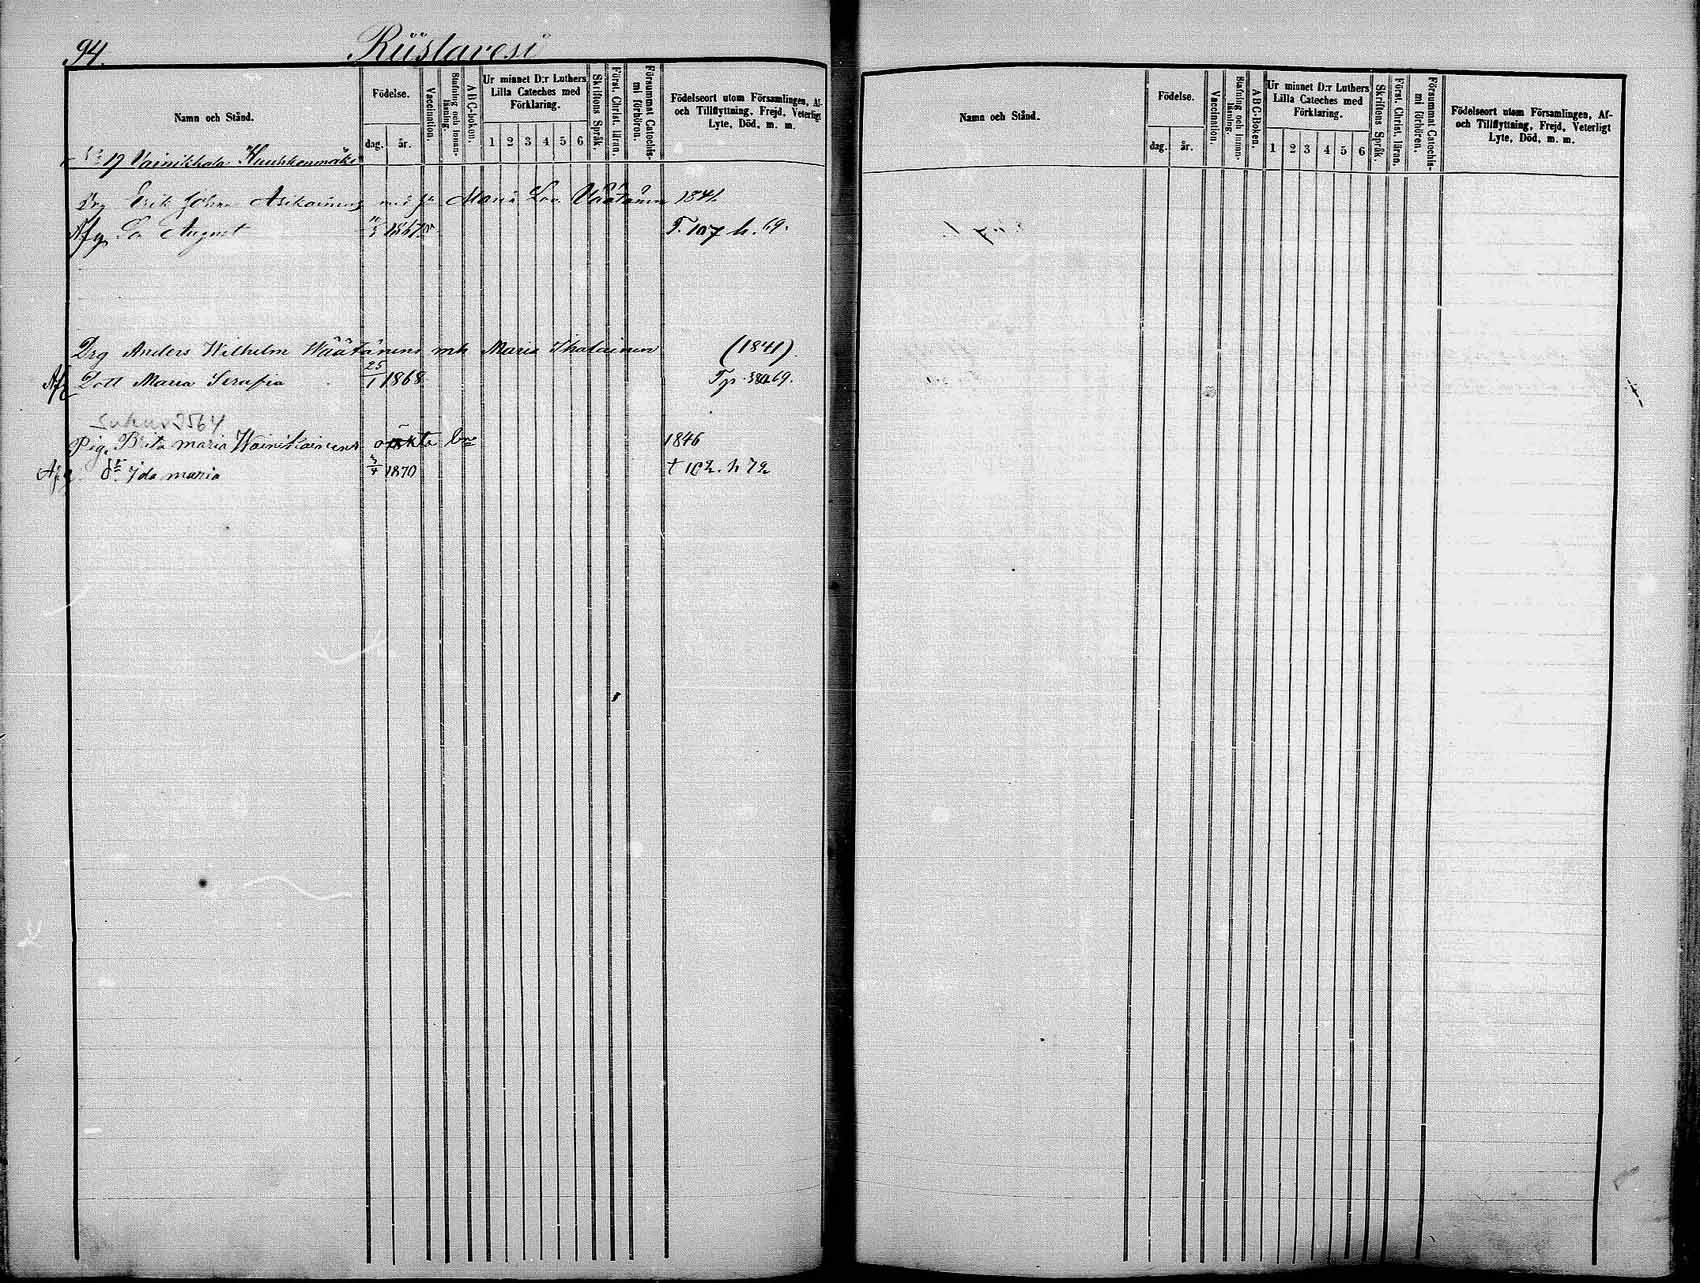 94.
Riistavesi
Namn och Stånd.
Födelse.
dag.
år.
Vaccination.
Stafning och Innan-läsning.
ABC-boken.
Ur minnet D:r Luthers
Lilla Cateches med
Förklaring.
1 2 3 4 5 6
Skriftens Språk.
Först. Christ. läran.
Försummat Catechis-mi förhören.
Födelseort utom Församlingen, Af-
och Tillflyttning, Frejd, Veterligt
Lyte, Död, m. m.
No 17 Vainikkala Kuukkenmäki
Drg Erik Johan Asikainens med h. Maria Lov. Väätänen 1841.
Afg. So August 11/5 1867 v T. 107 h. 69.
Drg Anders Wilhelm Wäätänens mh Maria Ihalainen (1841)
Afg Dott Maria Serafia 25/1 1868 Tp. 69.
Suku 2564
Pig. Brita Maria Wainikainens oäkta bn 1846
Afg. dr Ida Maria 3/4 1870 † 162. h 72
Namn och Stånd.
Födelse.
dag.
år.
Vaccination.
Stafning och Innan-läsning.
ABC-Boken.
Ur minnet D:r Luthers
Lilla Cateches med
Förklaring.
1 2 3 4 5 6
Skriftens Språk.
Först. Christ. läran.
Försummat Catechis-mi förhören.
Födelseort utom Församlingen, Af-
och Tillflyttning, Frejd, Veterligt
Lyte, Död, m. m.